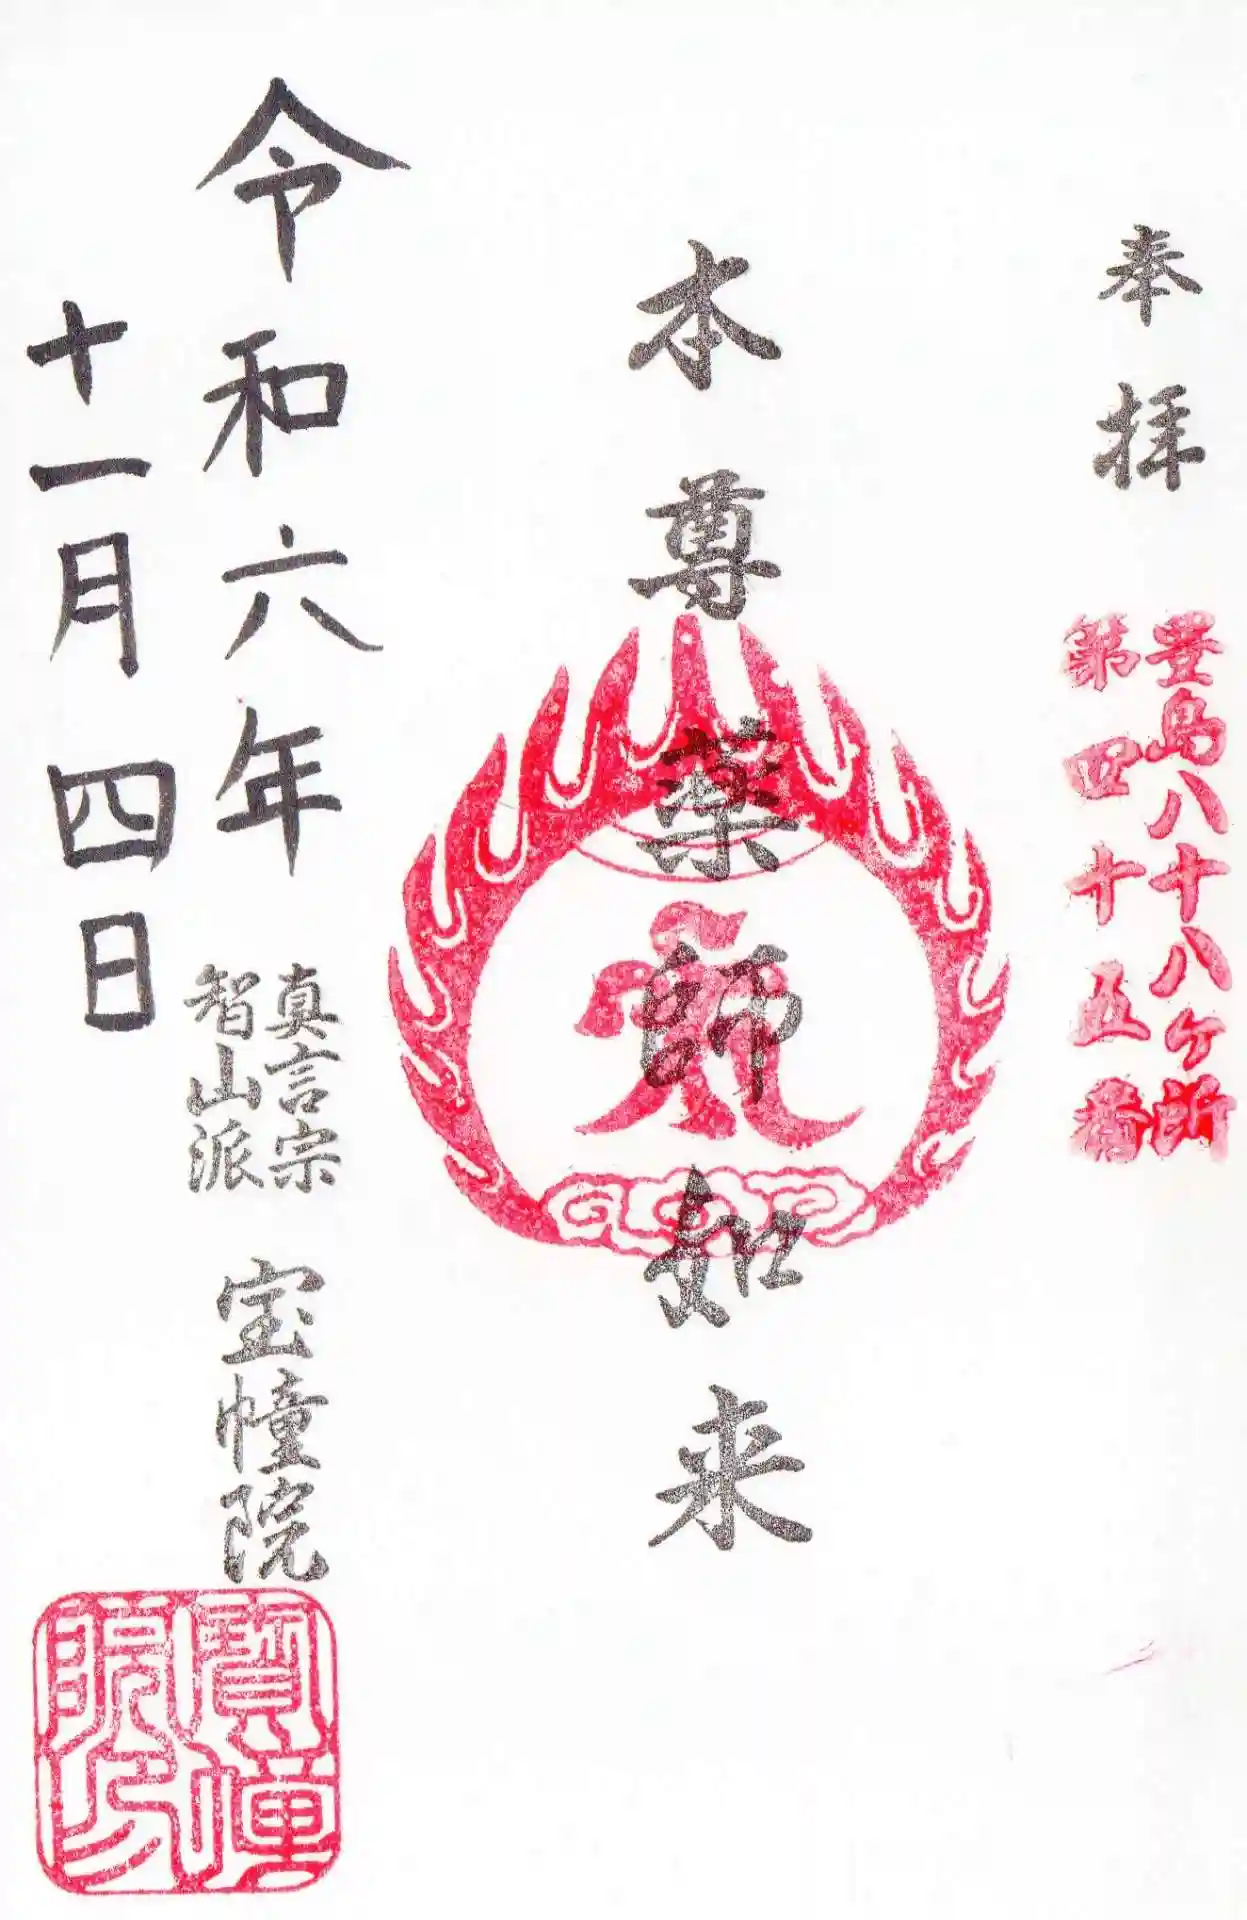 奉拝
豊島八十八ヶ所
第四十五番
本尊薬師如来
令和六年
十一月四日
真言宗
智山派
宝幢院
寶幢
院印